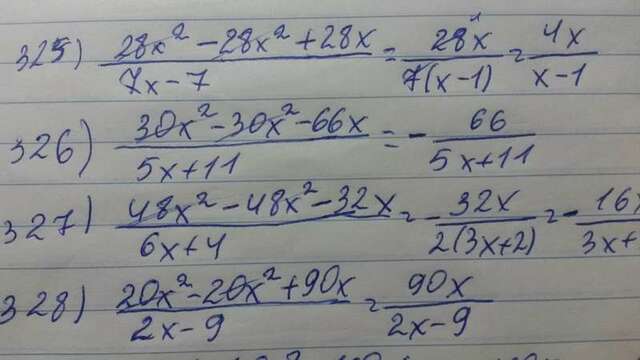 325) (28x² - 28x² + 28x)/(7x - 7) = 28x/(7(x - 1)) = 4x/(x - 1)
326) (30x² - 30x² - 66x)/(5x + 11) = - 66/(5x + 11)
327) (48x² - 48x² - 32x)/(6x + 4) = - 32x/(2(3x + 2)) = - 16x/(3x +
328) (20x² - 20x² + 90x)/(2x - 9) = 90x/(2x - 9)